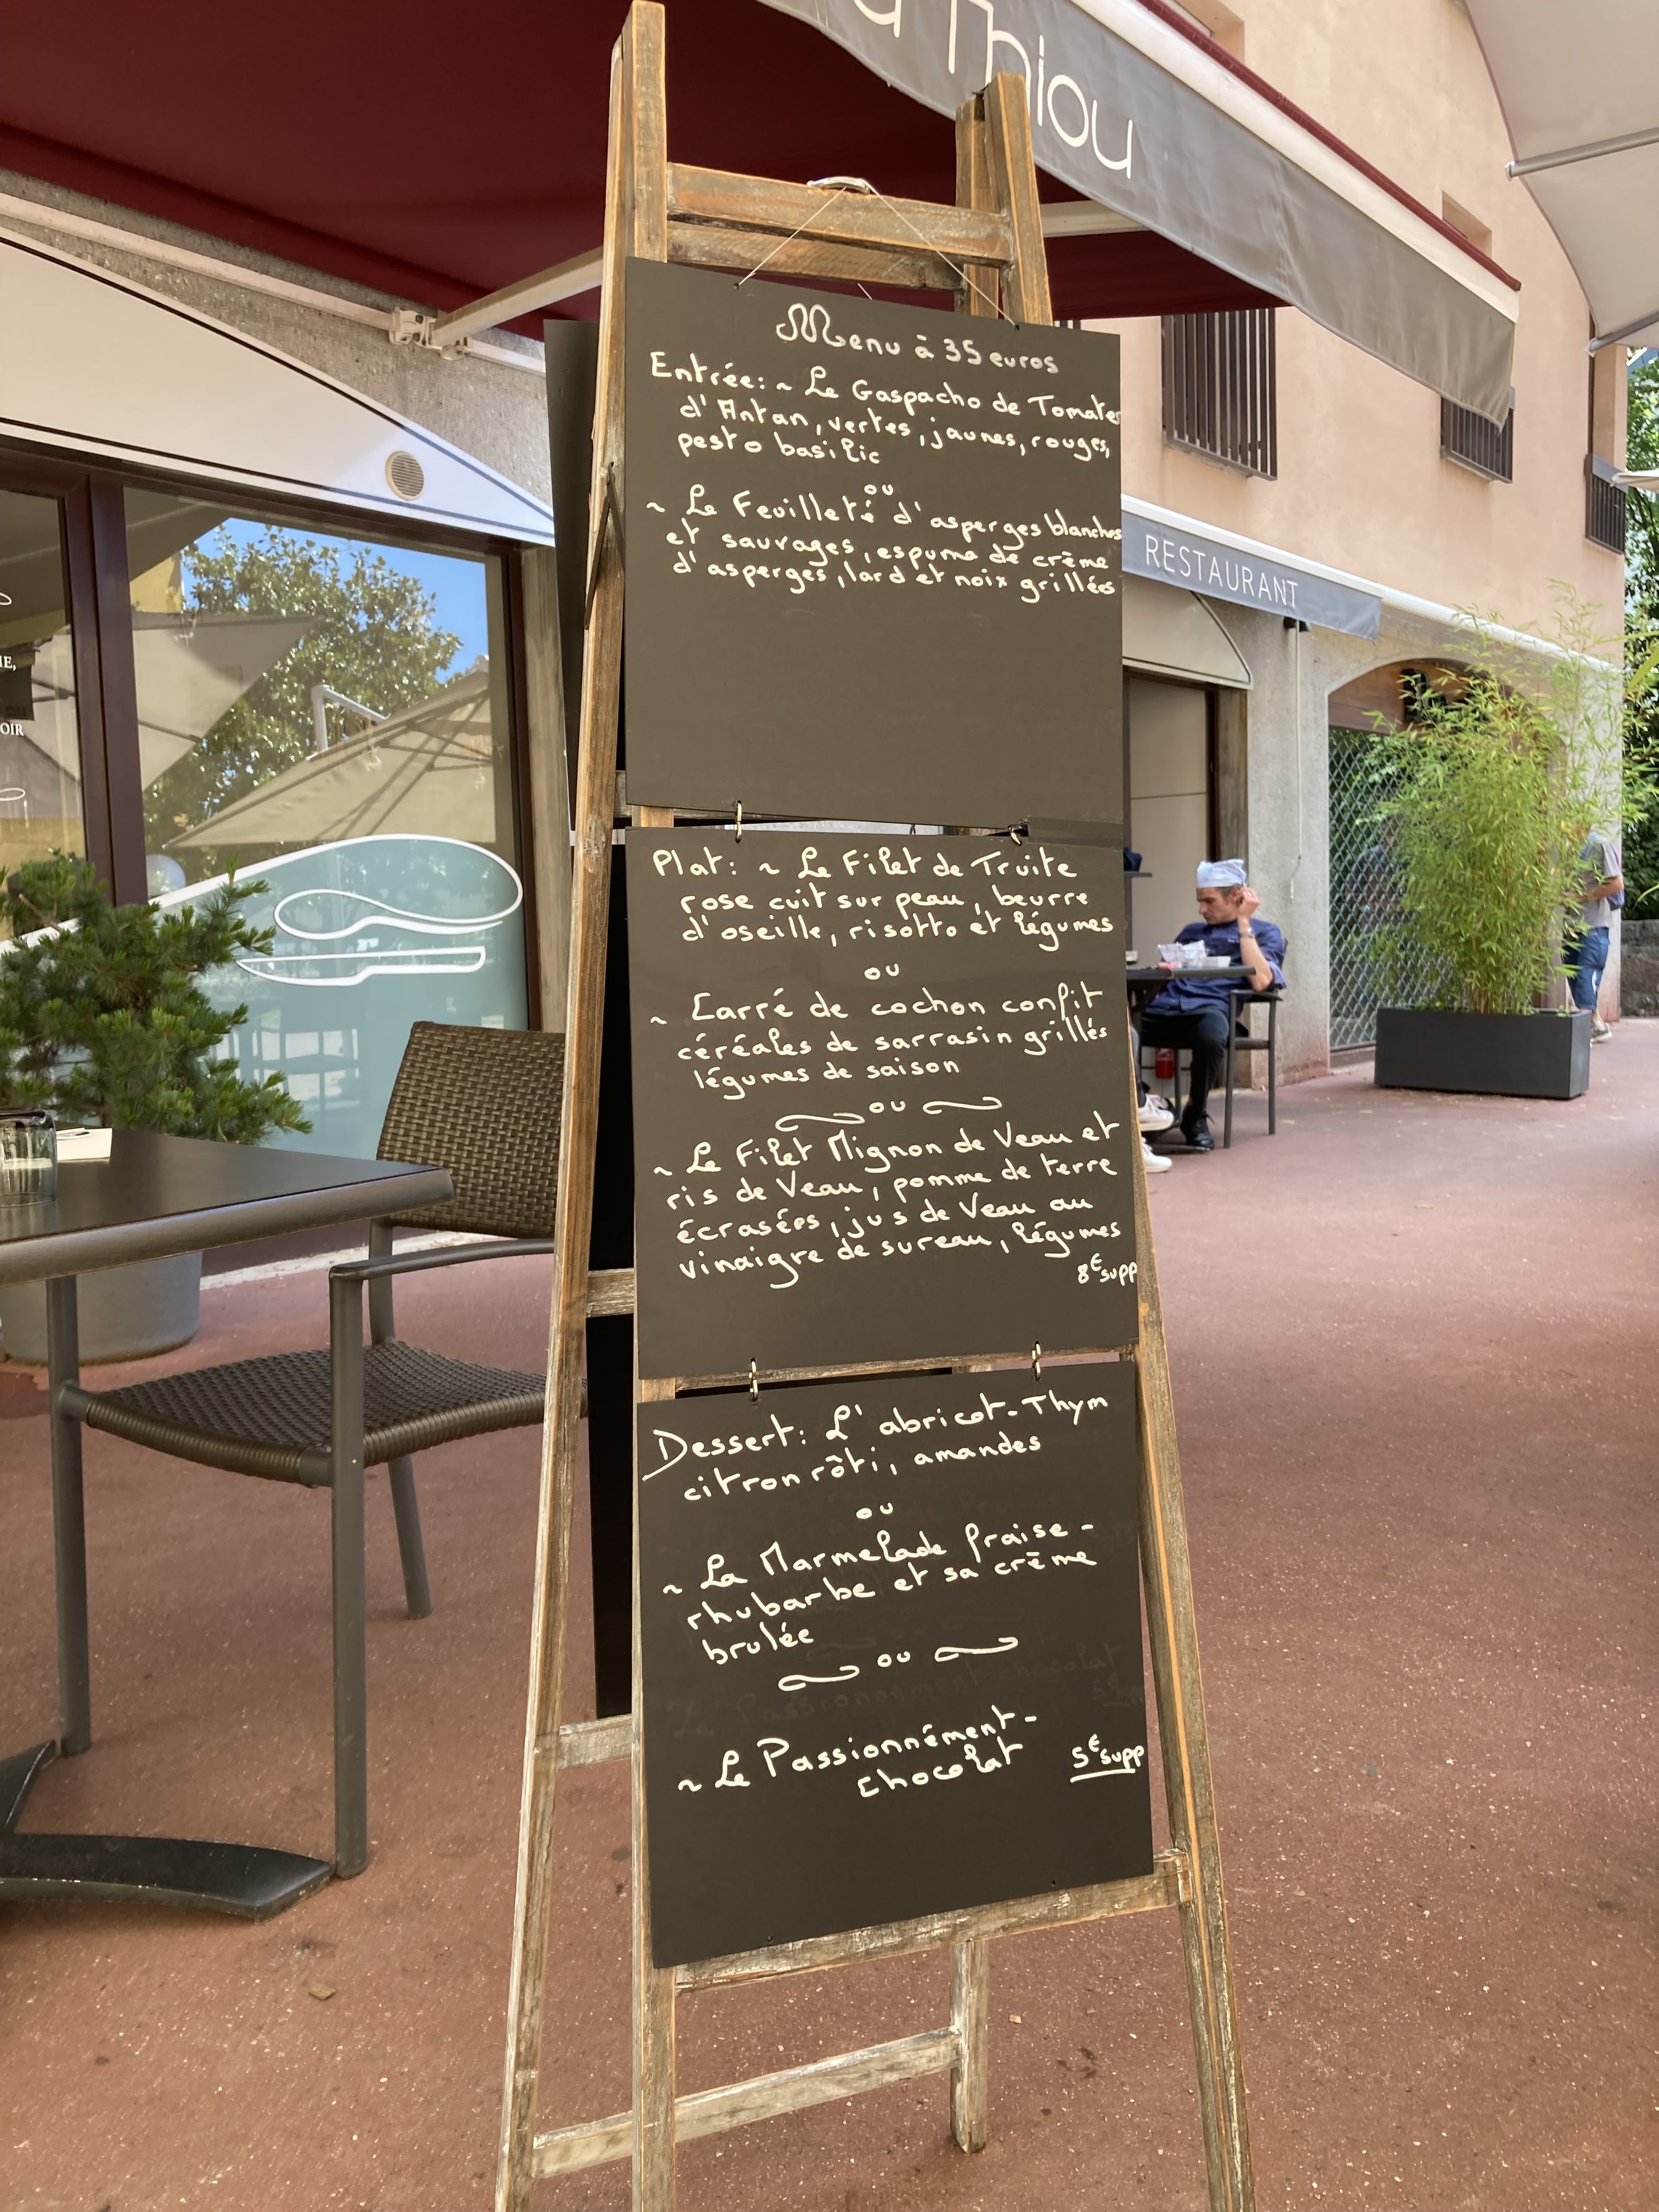 Thiou
Menu à 35 euros
Entrée: ~ Le Gaspacho de Tomates
d'Antan, vertes, jaunes, rouges,
pesto basilic
ou
~ Le Feuilleté d'asperges blanches
et sauvages, espuma de crème
d'asperges, lard et noix grillées
RESTAURANT
Plat: ~ Le Filet de Truite
rose cuit sur peau, beurre
d'oseille, risotto et légumes
ou
~ Carré de cochon confit
céréales de sarrasin grillés
légumes de saison
ou
~ Le Filet Mignon de Veau et
ris de Veau, pomme de terre
écrasées, jus de Veau au
vinaigre de sureau, légumes
8€ supp
Dessert: L'abricot-Thym
citron rôti, amandes
ou
~ La Marmelade fraise-
rhubarbe et sa crème
brulée
ou
~ Le Passionnément-
Chocolat 5€ supp
OIR